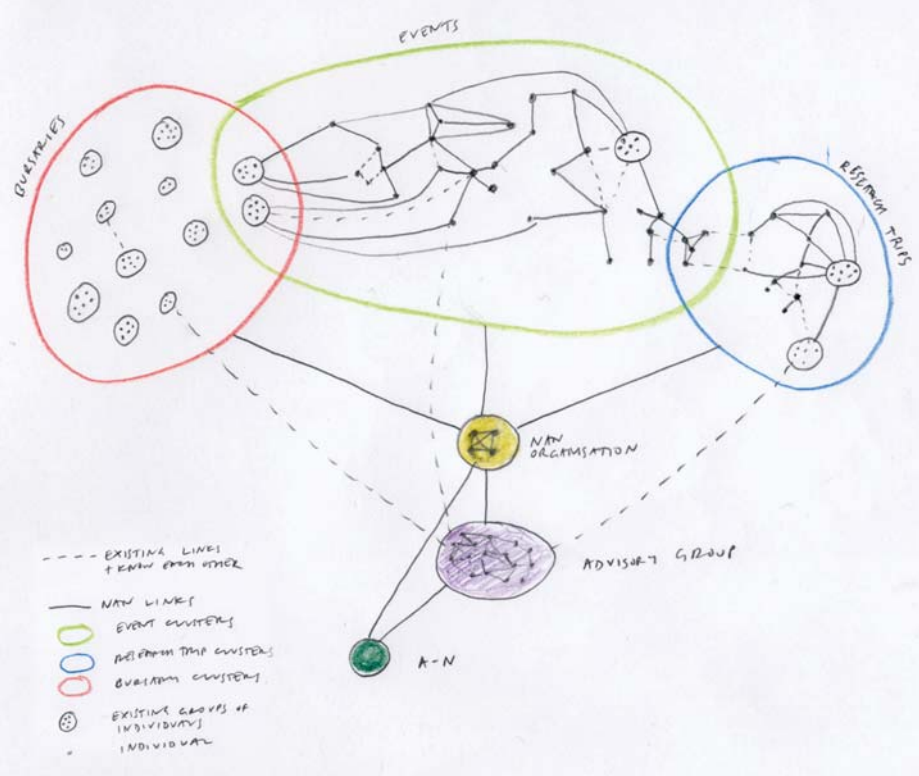 EVENTS
BURSARIES
RESEARCH TRIPS
NAN
ORGANISATION
ADVISORY GROUP
A-N
EXISTING LINKS
+ KNOW EACH OTHER
NAN LINKS
EVENT CLUSTERS
RESEARCH TRIP CLUSTERS
BURSARY CLUSTERS
EXISTING GROUPS OF
INDIVIDUALS
INDIVIDUAL